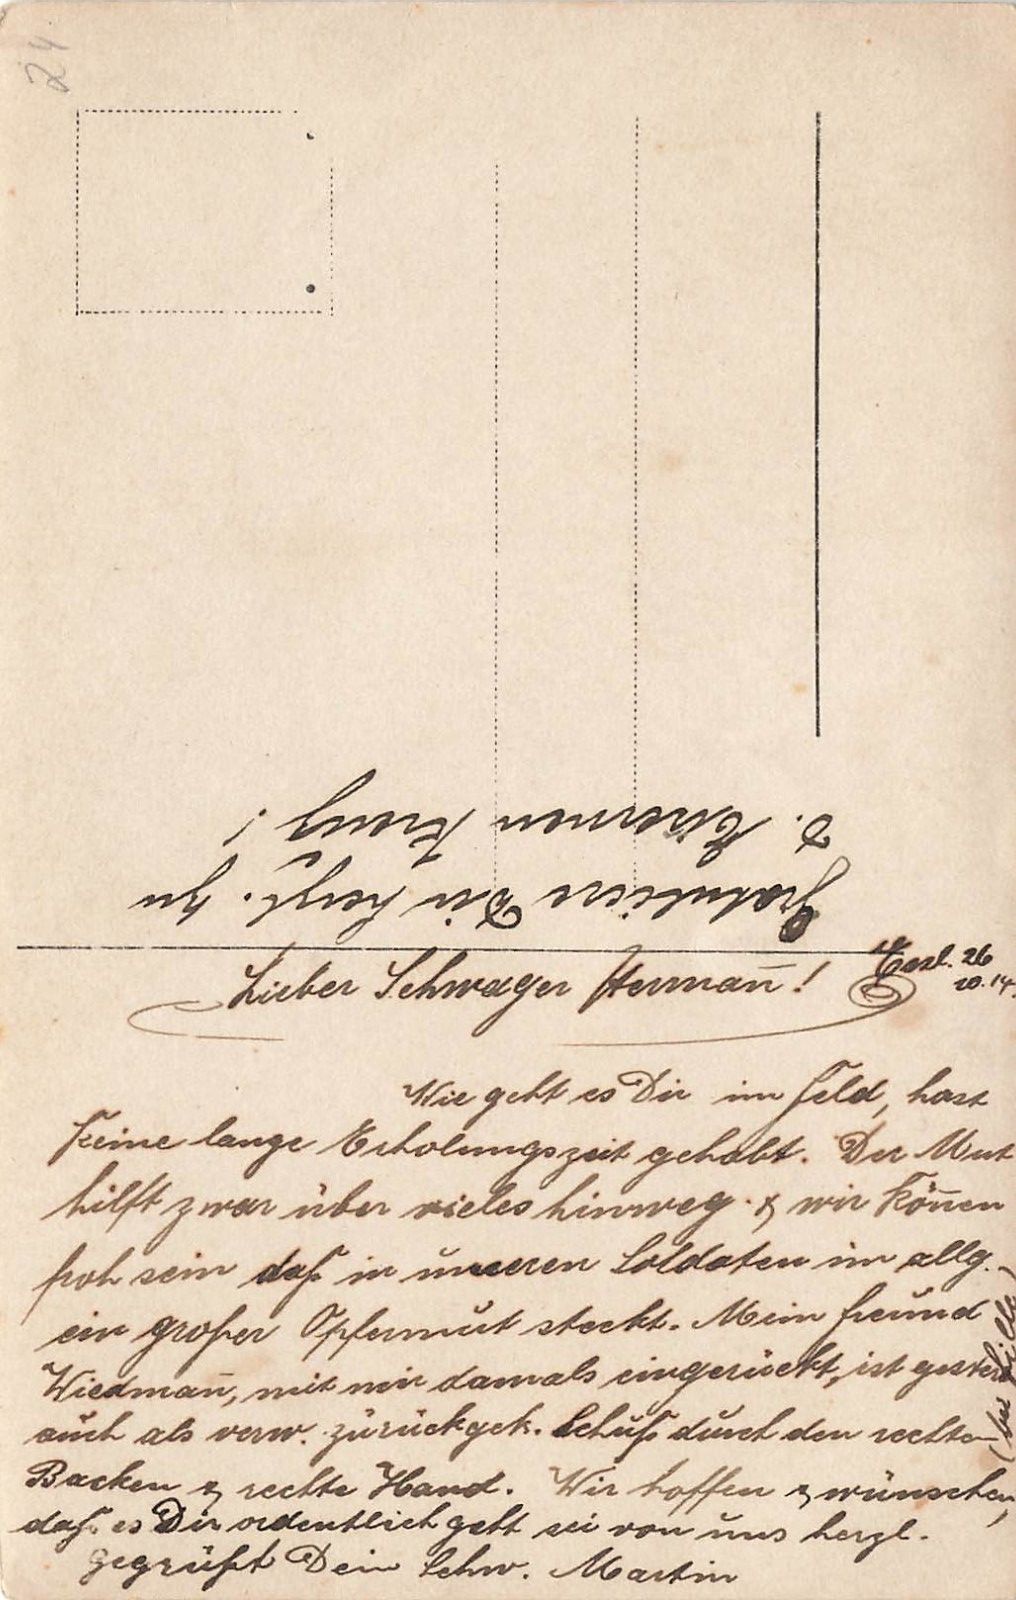 24
Gratuliere Dir herzl. zu
d. Eisernen Kreuz!
Lieber Schwager Herman̄!
Eesl. 26
10.14.
Wie geht es Dir im Feld, hast
keine lange Erholungszeit gehabt. Der Mut
hilft zwar über vieles hinweg & wir kön̄en
froh sein daß in unseren Soldaten im allg.
ein großer Opfermut steckt. Mein Freund
Wiedman̄, mit mir damals eingerückt, ist gestern
auch als verw. zurückgek. Schuß durch den rechten
(bei Lille)
Backen & rechte Hand. Wir hoffen & wünschen,
daß es Dir ordentlich geht sei von uns herzl.
gegrüßt Dein Schw. Martin